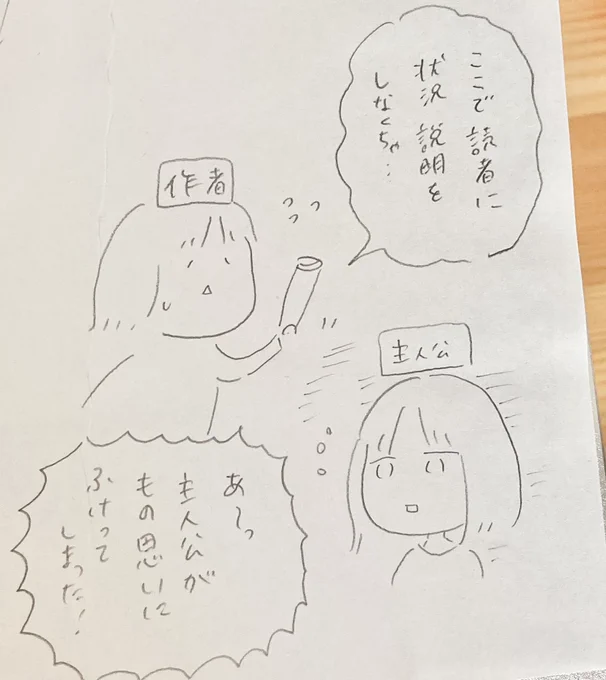 ここで読者に
状況説明を
しなくちゃ…
作者
主人公
あ〜っ
主人公が
もの思いに
ふけって
しまった!